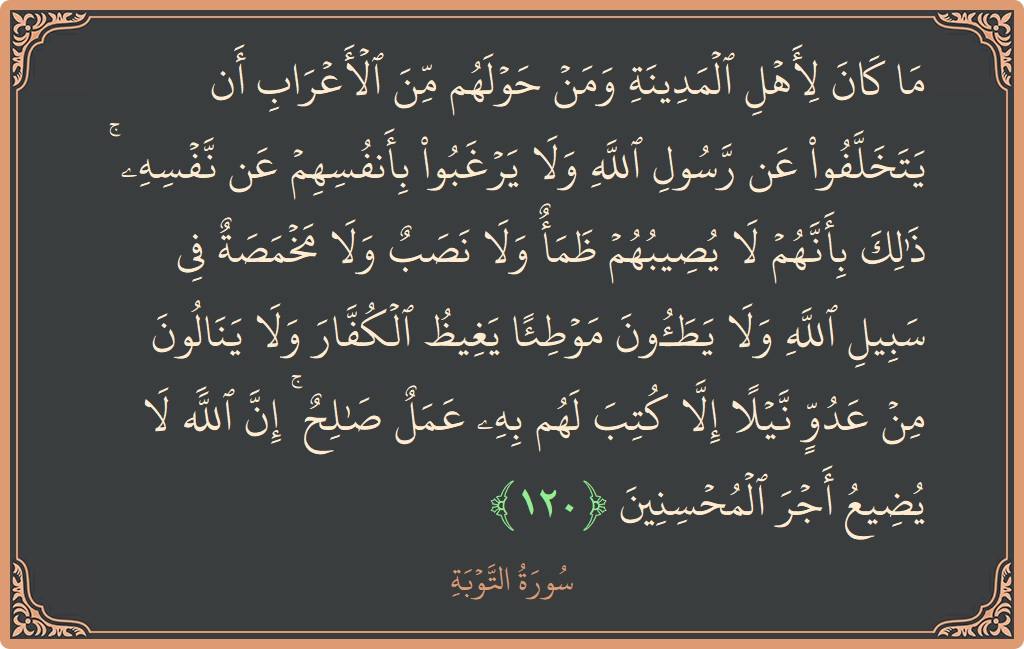 مَا كَانَ لِأَهۡلِ ٱلۡمَدِينَةِ وَمَنۡ حَوۡلَهُم مِّنَ ٱلۡأَعۡرَابِ أَن
يَتَخَلَّفُواْ عَن رَّسُولِ ٱللَّهِ وَلَا يَرۡغَبُواْ بِأَنفُسِهِمۡ عَن نَّفۡسِهِۦۚ
ذَٰلِكَ بِأَنَّهُمۡ لَا يُصِيبُهُمۡ ظَمَأٌ وَلَا نَصَبٌ وَلَا مَخۡمَصَةٌ فِى
سَبِيلِ ٱللَّهِ وَلَا يَطَـُٔونَ مَوۡطِئًا يَغِيظُ ٱلۡكُفَّارَ وَلَا يَنَالُونَ
مِنۡ عَدُوٍّ نَّيۡلًا إِلَّا كُتِبَ لَهُم بِهِۦ عَمَلٌ صَٰلِحٌۚ إِنَّ ٱللَّه لَا
يُضِيعُ أَجۡرَ ٱلۡمُحۡسِنِينَ ﴿١٢٠﴾
سُورَةُ التَّوۡبَةِ